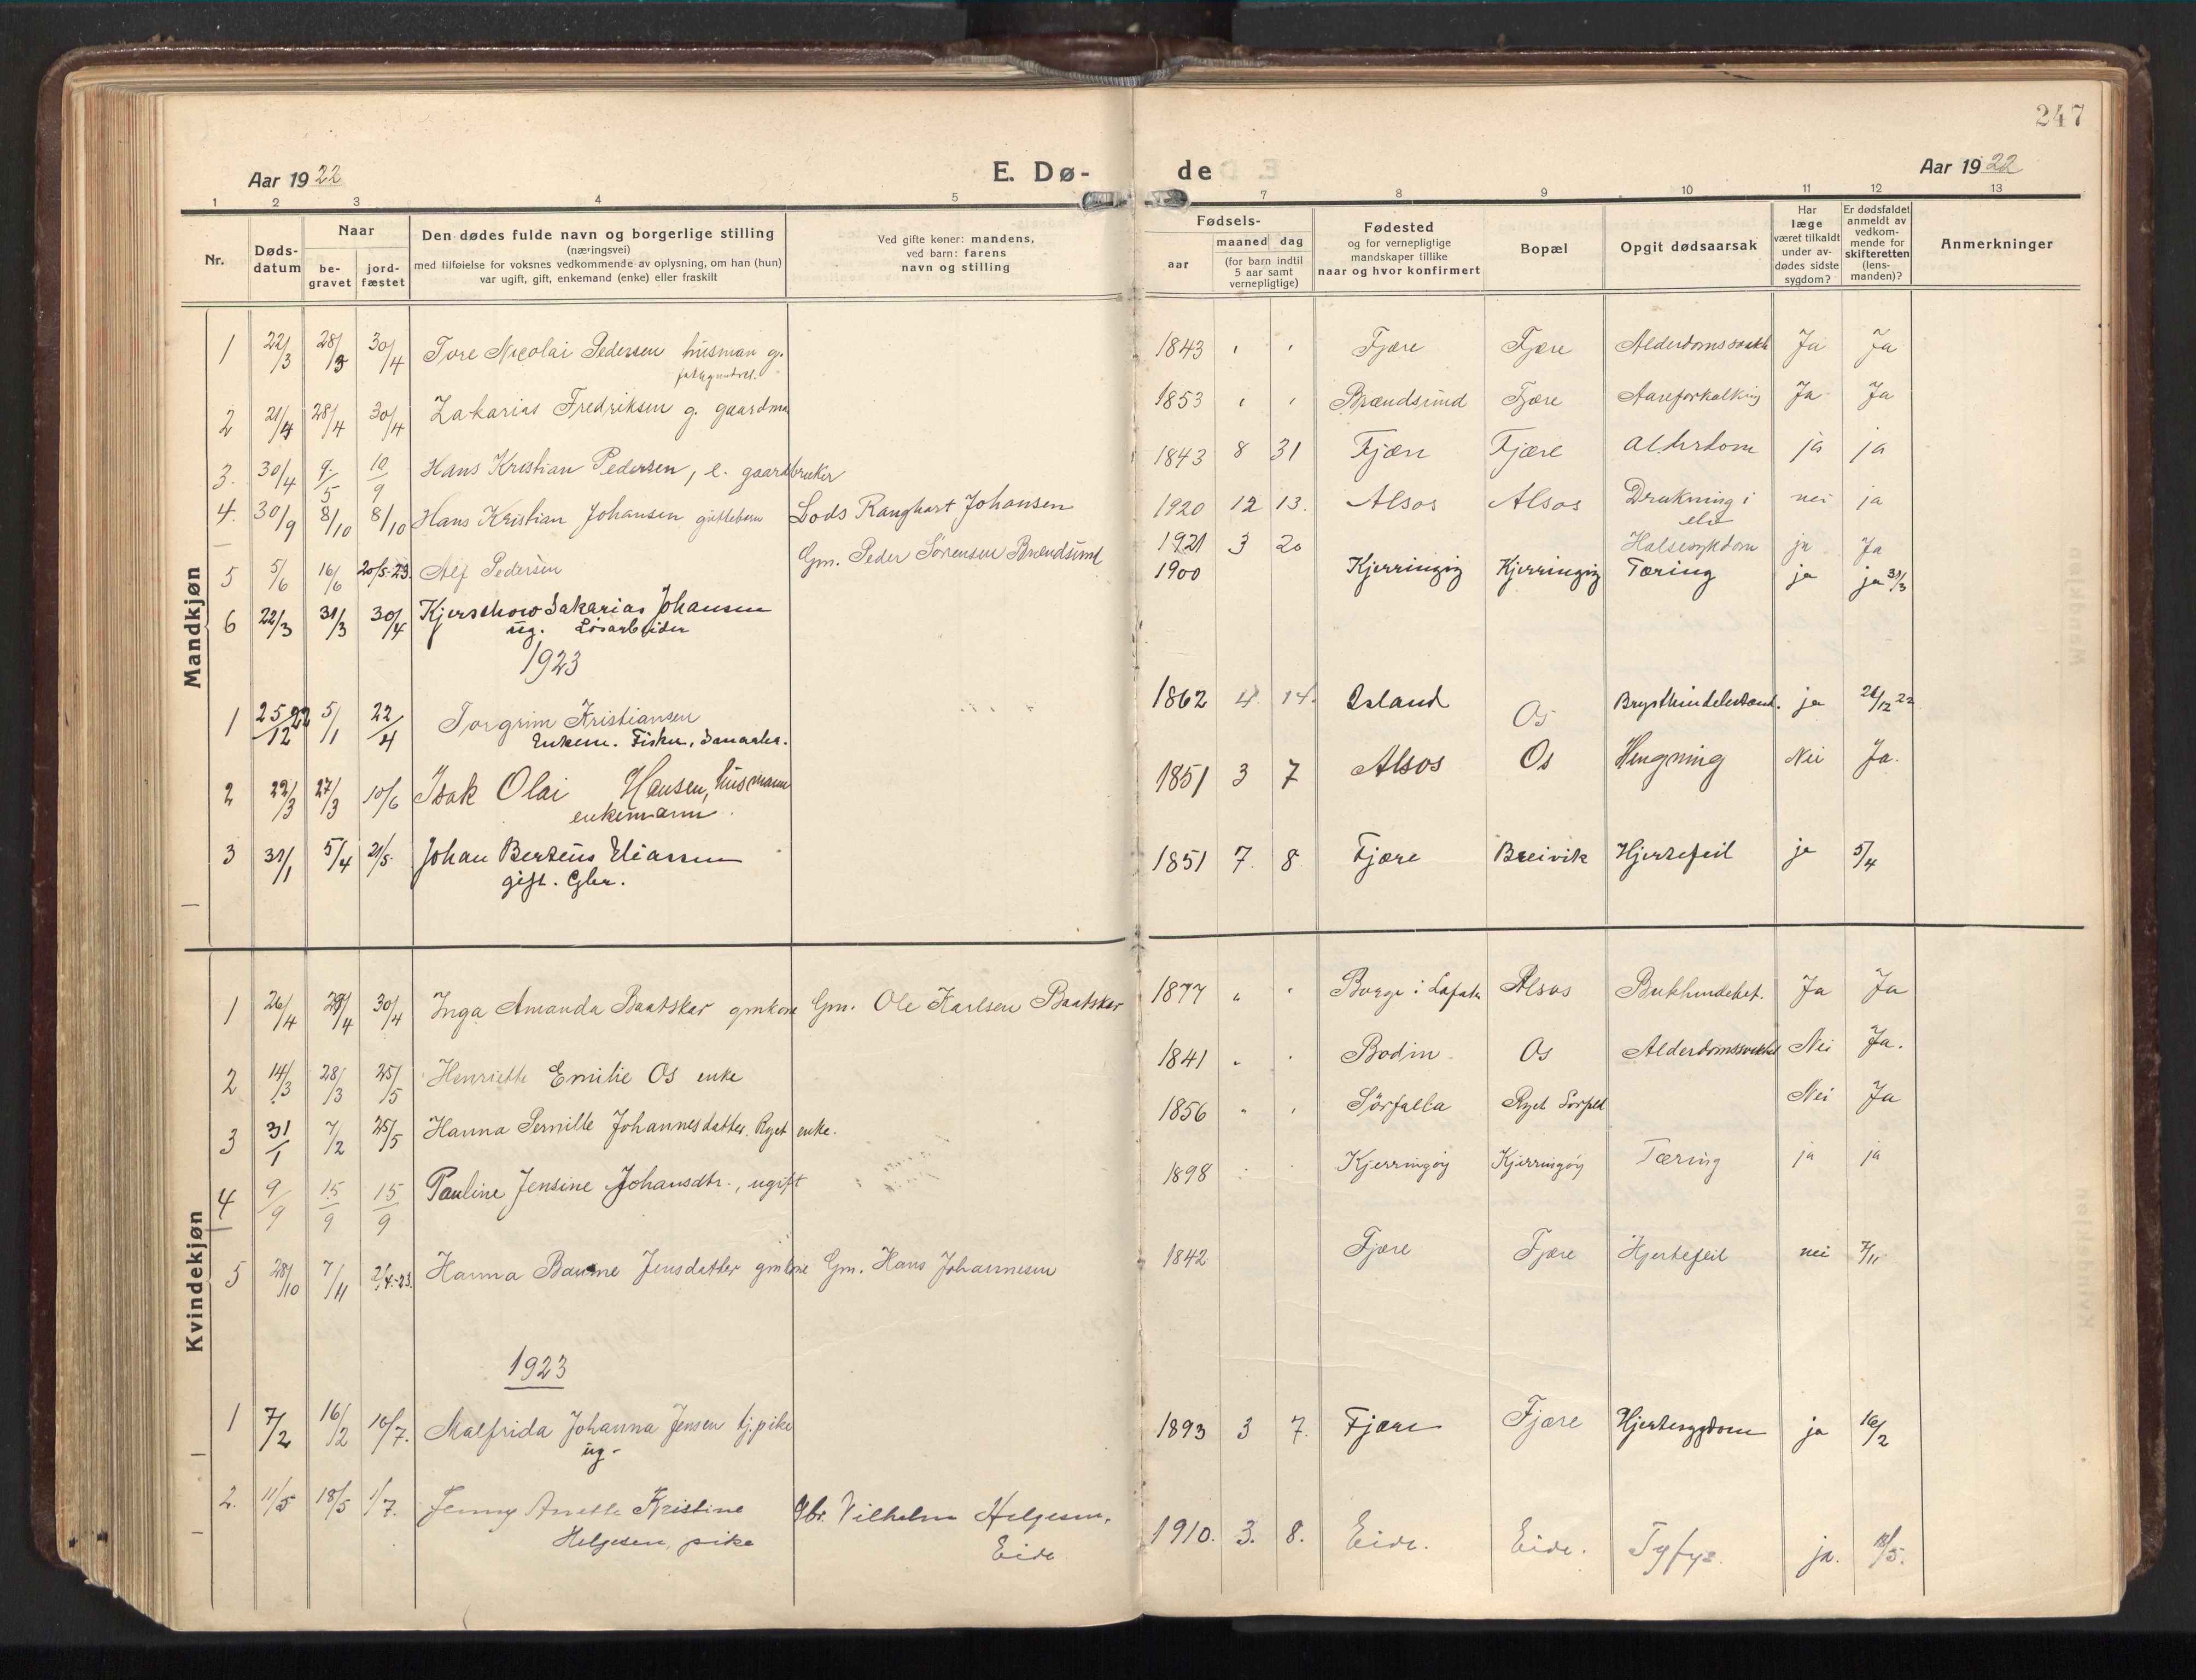 247
Aar 1922
E. Dø-
de
Aar 1922
1 2 3 4 5 7 8 9 10 11 12 13
Nr.
Døds-
datum
Naar
be-
gravet
jord-
fæstet
Den dødes fulde navn og borgerlige stilling
(næringsvei)
med tilføielse for voksnes vedkommende av oplysning, om han (hun)
var ugift, gift, enkemand (enke) eller fraskilt
Ved gifte koner: mandens,
ved barn: farens
navn og stilling
Fødsels-
aar
maaned dag
(for barn indtil
5 aar samt
vernepligtige)
Fødested
og for vernepligtige
mandskaper tillike
naar og hvor konfirmert
Bopæl
Opgit dødsaarsak
Har
læge
været tilkaldt
under av-
dødes sidste
sygdom?
Er dødsfaldet
anmeldt av
vedkom-
mende for
skifteretten
(lens-
manden)?
Anmerkninger
Mandkjøn
1 22/3 28/3 30/4 Tore Nicolai Pedersen husman g. 1843 Fjære Fjære Ja Ja
2 21/4 28/4 30/4 Zakarias Fredriksen g. gaardma 1853 Brændsund Fjære Aareforkalkning Ja Ja
3. 30/4 9/5 10/9 Hans Kristian Pedersen, e. gaardbruker 1843 8 31 Fjære Fjære Alderdom ja ja
4. 30/9 8/10 8/10 Hans Kristian Johansen guttebarn Lods Ranghart Johansen 1920 12 13. Alsos Alsos Drukning i nei ja
elv
5 5/6 16/6 20/5-23. Alf Pedersen Gm. Peder Sørensen Brændsund 1921 3 20 Halsesykdom ja Ja
6 22/3 31/3 30/4 Kjerschow Sakarias Johansen 1900 Kjerringøy Kjerringøy Tæring ja ja 31/3
ug. Løsarbeider
1923
1 25/12 22 5/1 22/4 Torgrim Kristiansen 1862 4 14. Os ja
Enkem. Fisker,
2 22/3 27/3 10/6 Isak Olai Hansen, husmann 1851 3 7 Alsos Os Hengning Nei Ja.
enkemann
3 31/1 5/4 21/5 Johan Bertéus Eliassen 1851 7. 8. Fjære Breivik Hjertefeil ja 5/4
gift. Gbr.
Kvindekjøn
1 26/4 29/4 30/4 Inga Amanda Baatskar gmkone Gm. Ole Karlsen Baatskar 1877 Borge i Lofoten Alsos Ja Ja
2 14/3 28/3 25/5 Henriette Emilie Os enke 1841 Bodin Os Nei Ja.
3 31/1 7/2 25/5 Hanna Pernille Johannesdatter Ryet enke. 1856 Sörfolla Ryet Nei Ja
4 9/9 15/9 15/9 Pauline Jensine Johansdtr., ugift 1898 Kjerringøy Kjerringøy Tæring ja ja
5 28/10 7/11 Hanna Jensdatter gmkone Gm. Hans Johannesen 1842 Fjære Fjære Hjertefeil nei 7/11
1923
1 7/2 16/2 Malfrida Johanna Jensen tj.pike 1893 3 7. Fjære Fjære Hjertesygdom ja 16/2
ug.
2. 11/5 18/5 1/7. Jenny Anette Kristine Gbr. Vilhelm Helgesen, 1910. 3. 8. Eide. Eide. ja. 18/5.
Helgesen, pike Eide